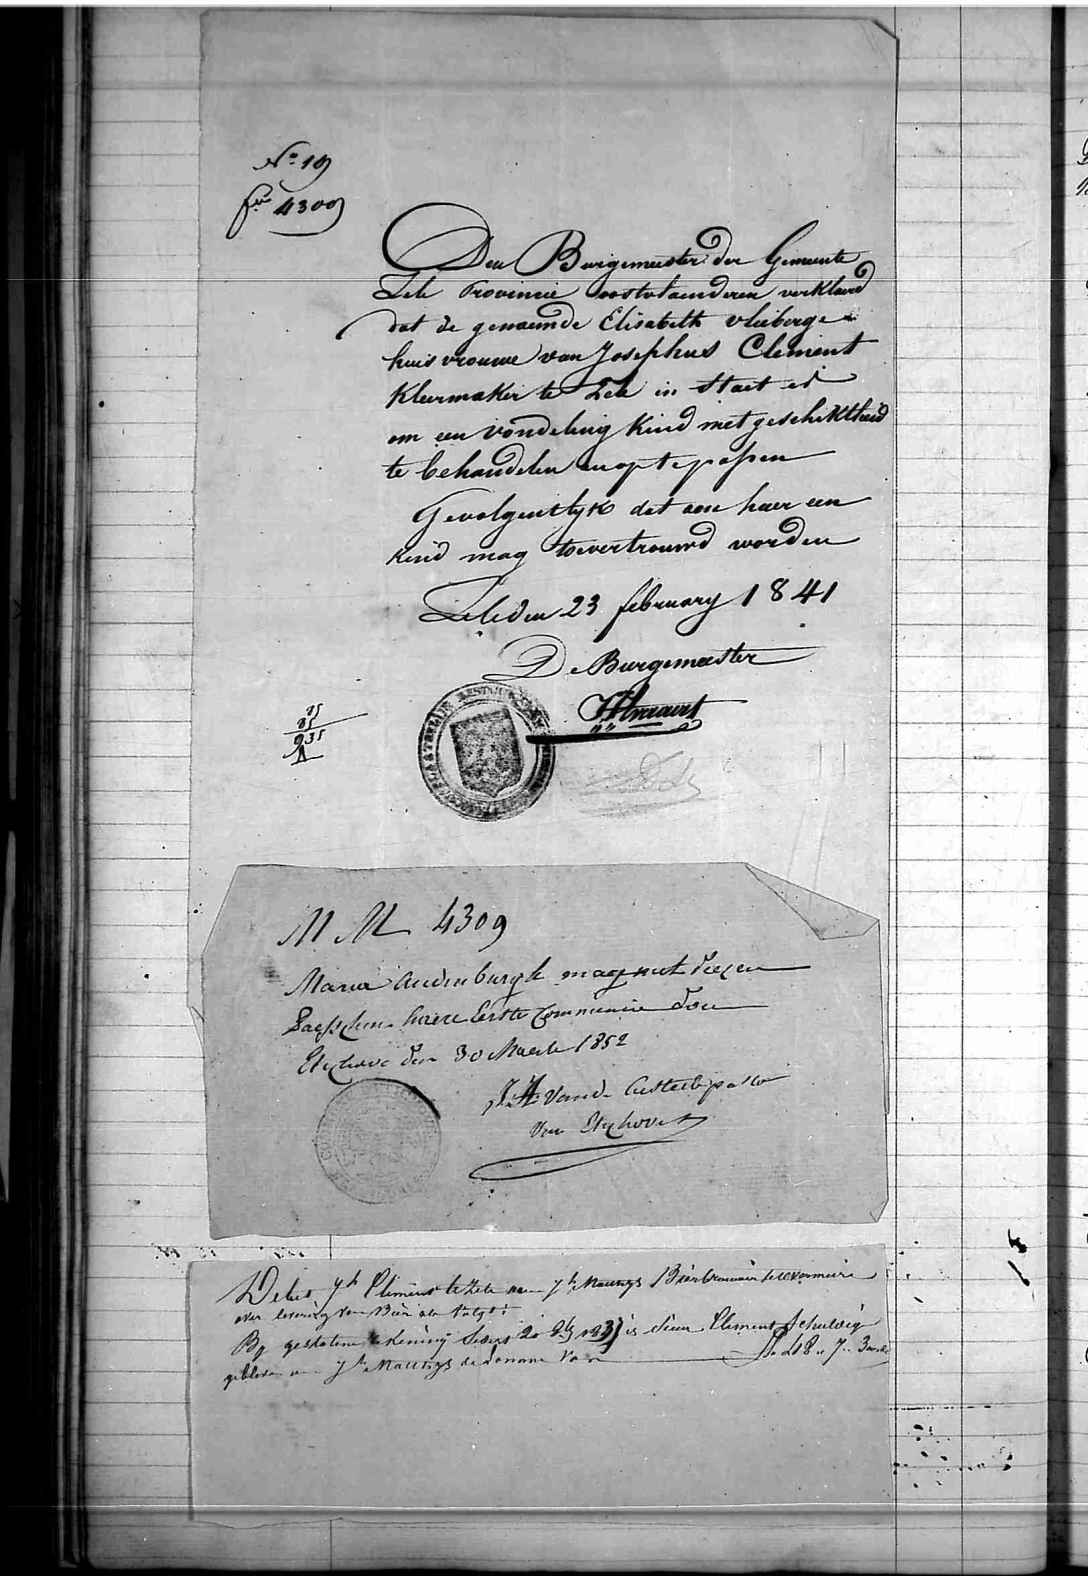 No 19
fo 4309
Den Burgemeester der Gemeente
Zele Provincie oostvlaenderen verklaerd
dat de genaemde Elisabeth vleeberge
huisvrouwe van Josephus Clement
Kleermaker te Zele in staet is
om een vondeling kind met geschiktheid
te behandelen en op te passen
Gevolgentlyk dat aen haer een
kind mag toevertrouwd worden
Zele den 23 february 1841
De Burgemeester
N 4309
Maria Audenburgh mag met deezen
haere Eerste Communie doen
Etichove den 30 Maerte 1852
Van Etichove
Debet Jh Clement te Zele aen Jh Bierbrouwer
over levering van Bier als volgt:
By geslotene Rekening is dien Clement Schuldig
gebleven aen Jh de Somme van